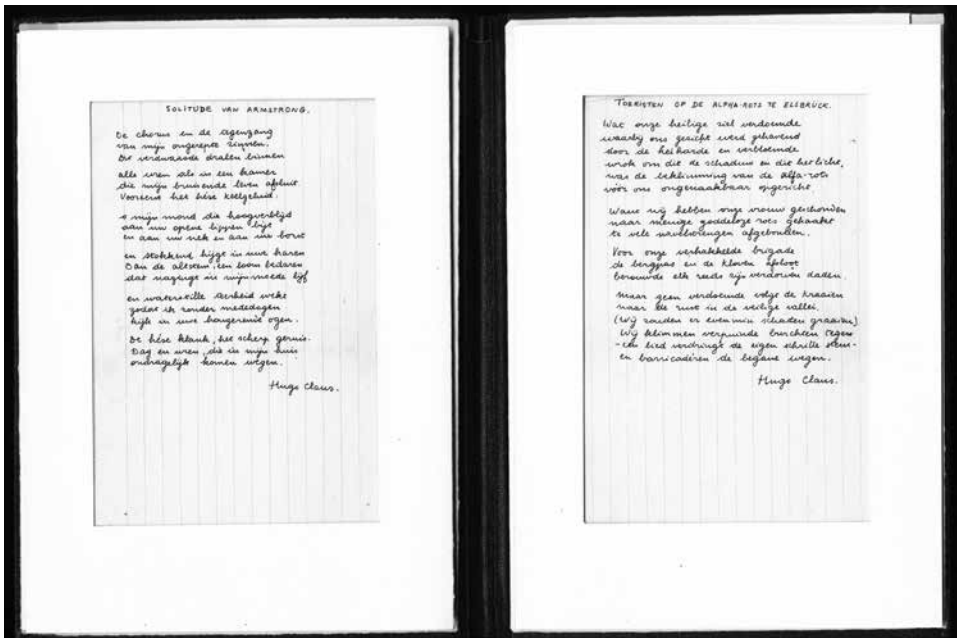 SOLITUDE VAN ARMSTRONG.
De chorus en de tegenzang
van mijn ongerepte zinnen.
Dit verdwaasde dralen binnen
alle uren als in een kamer
die mijn bruisende leven afsluit.
Voorbij het hése keelgeluid.
mijn mond die hoogverblijd
aan uw opene lippen bijt
en aan uw nek en aan uw borst
en stokkend hijgt in uwe haren
Dan de altstem, een loom bedaren
dat nazuigt in mijn moede lijf
en waterstille weekt
zodat ik zonder mededogen
kijk in uwe hongerende ogen.
De hése klank, het scherp geruis.
Dag en uren, die in mijn huis
ondragelijk komen wegen.
Hugo Claus.
TOERISTEN OP DE ALPHA-ROTS TE ELSBRUCK.
Wat onze heilige ziel verdoemde
waarbij ons gezicht werd gehavend
door de keiharde en verbloemde
wrok om dit de schaduw en dit het licht,
was de beklimming van de alfa-rots
vóór ons ongenaakbaar opgericht.
Want wij hebben onze vrouw geschonden
naar menige goddeloze roes gehaakt
te vele navelstrengen afgebonden.
Voor onze verhakkelde brigade
de bergpas en de kloven afsloot
berouwde elk reeds zijn verdorven daden.
Maar geen verdoemde volgt de kraaien
naar de rust in de veilige vallei.
(Wij zouden er evenmin schaden graaien)
Wij klimmen verpuinde burchten tegen
- een lied verdringt de eigen schrille stem -
en barricaderen de begane wegen.
Hugo Claus.